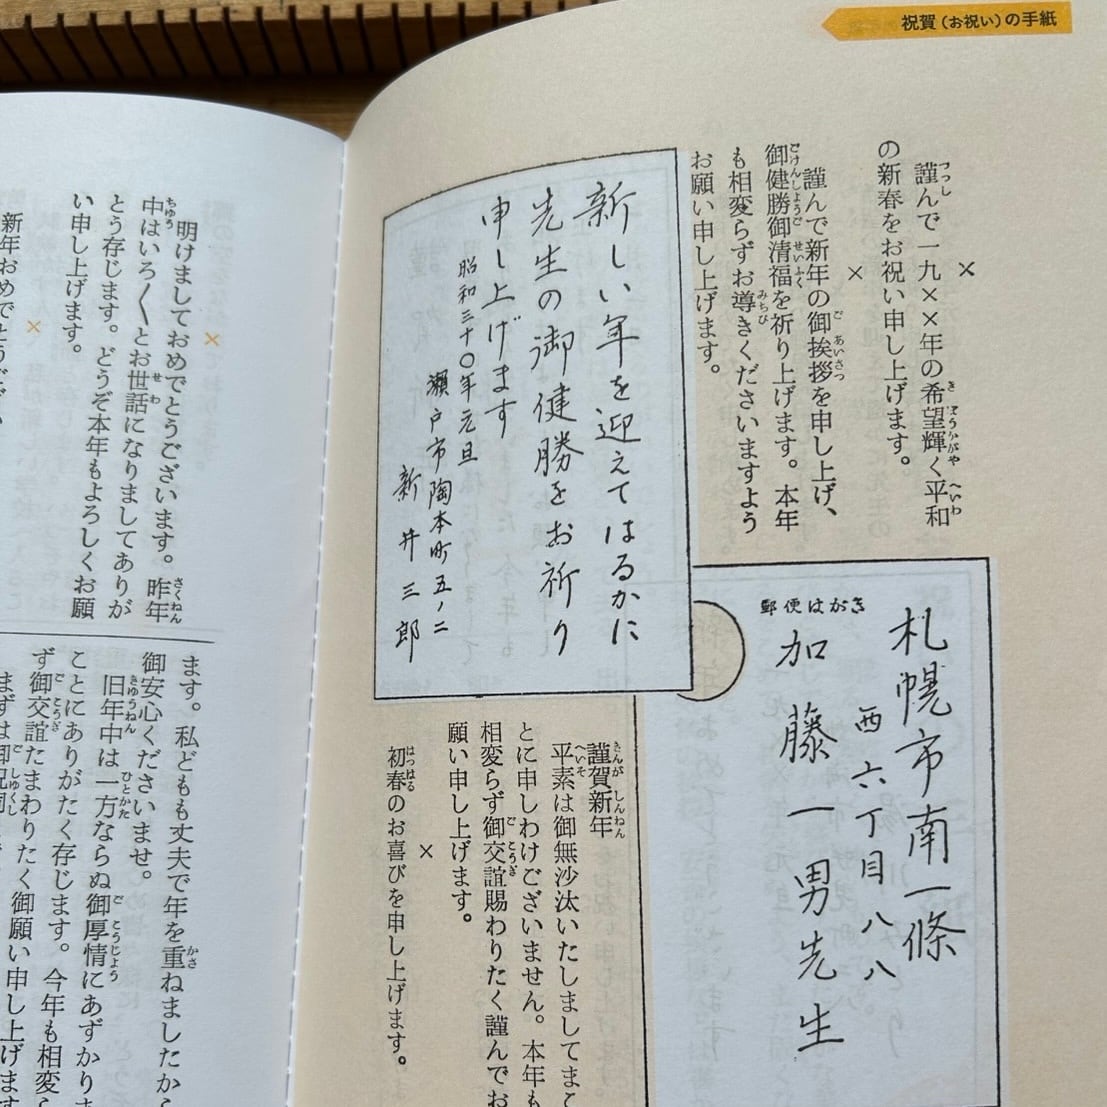 祝賀（お祝い）の手紙
×
謹んで一九××年の希望輝く平和
の新春をお祝い申し上げます。
×
謹んで新年の御挨拶を申し上げ、
御健勝御清福を祈り上げます。本年
も相変らずお導きくださいますよう
お願い申し上げます。
新しい年を迎えてはるかに
先生の御健勝をお祈り
申し上げます
昭和三十〇年元旦
瀬戸市陶本町五ノ二
新井三郎
郵便はがき
札幌市南一條
西六丁目八八
加藤一男先生
謹賀新年
平素は御無沙汰いたしましてまこ
とに申しわけございません。本年も
相変らず御交誼賜わりたく謹んでお
願い申し上げます。
×
初春のお喜びを申し上げます。
×
明けましておめでとうございます。昨年
中はいろ〳〵とお世話になりましてありが
とう存じます。どうぞ本年もよろしくお願
い申し上げます。
×
新年おめでとうござい
ます。私どもも丈夫で年を重ねましたから
御安心くださいませ。
旧年中は一方ならぬ御厚情にあずかりま
ことにありがたく存じます。今年も相変ら
ず御交誼たまわりたく御願い申し上げます
まずは御祝詞